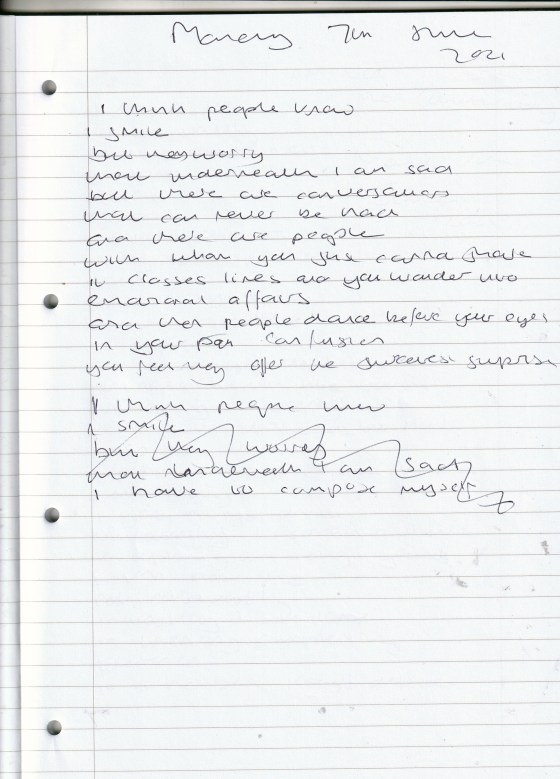 Monday 7th June
2021
I think people know
I smile
but they worry
that underneath I am sad
but there are conversations
that can never be had
and there are people
with whom you just cannot share
it crosses lines and you wander into
emotional affairs
and then people dance before your eyes
in your pain confusion
you feel they offer the sweetest surprise
I think people know
I smile
but they worry
that underneath I am sad
I have to compose myself